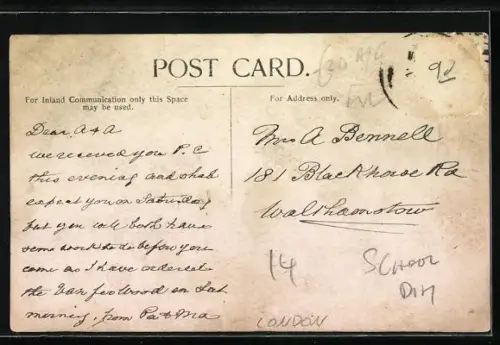 POST CARD.
For Inland Communication only this Space
may be used.
For Address only.
Dear A & A
we received you P.C
this evening and shall
expect you on Saturday
but you will both have
some work to do before you
come as I have ordered
the Van for Wood on Sat.
morning, from Pa & Ma
A Bennell
181 Blackhorse Rd
Walthamstow
14
SCHOOL
LONDON
92